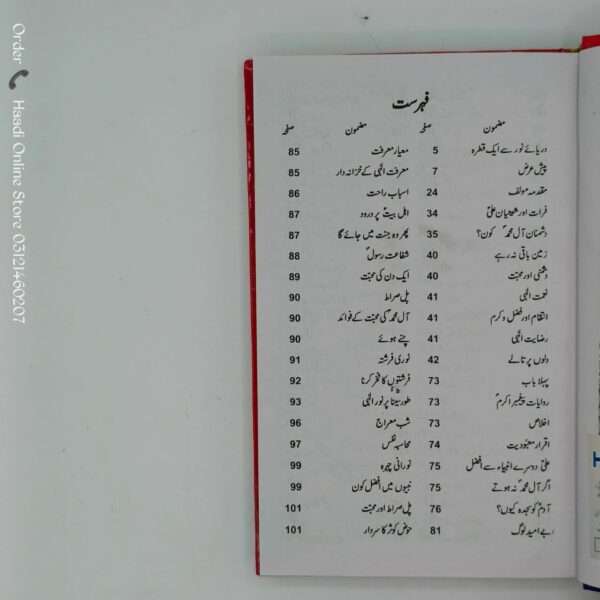 فہرست
مضمون صفحہ مضمون صفحہ
دریائے نور سے ایک قطرہ 5 معیار معرفت 85
پیش عرض 7 معرفت الٰہی کے خزانہ دار 85
مقدمہ مولف 24 اسباب راحت 86
فرات اور شیعیان علیؑ 34 اہل بیتؑ پر درود 87
دشمنان آل محمدؑ کون؟ 35 پھر وہ جنت میں جائے گا 87
زمین باقی نہ رہے 40 شفاعت رسولؐ 88
دشمنی اور محبت 40 ایک دن کی محبت 89
نعمت الٰہی 41 پل صراط 90
انتقام اور فضل و کرم 41 آل محمدؑ کی محبت کے فوائد 90
رضایت الٰہی 41 چنے ہوئے 90
دلوں پر تالے 42 نوری فرشتہ 91
پہلا باب 73 فرشتوں کا فخر کرنا 92
روایات پیغمبر اکرمؐ 73 طور سینا پر نور الٰہی 93
اخلاص 73 شب معراج 96
اقرار معبودیت 74 محاسبہ نفس 97
علیؑ دوسرے انبیاء سے افضل 75 نورانی چہرہ 99
اگر آل محمدؑ نہ ہوتے 75 نبیوں میں افضل کون 99
آدمؑ کو سجدہ کیوں؟ 76 پل صراط اور محبت 101
بے امید لوگ 81 حوض کوثر کا سردار 101
Order Haadi Online Store 03121460207